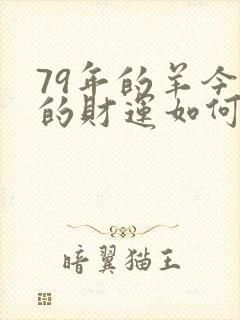 79年的羊今
的财运如何
暗翼猫王